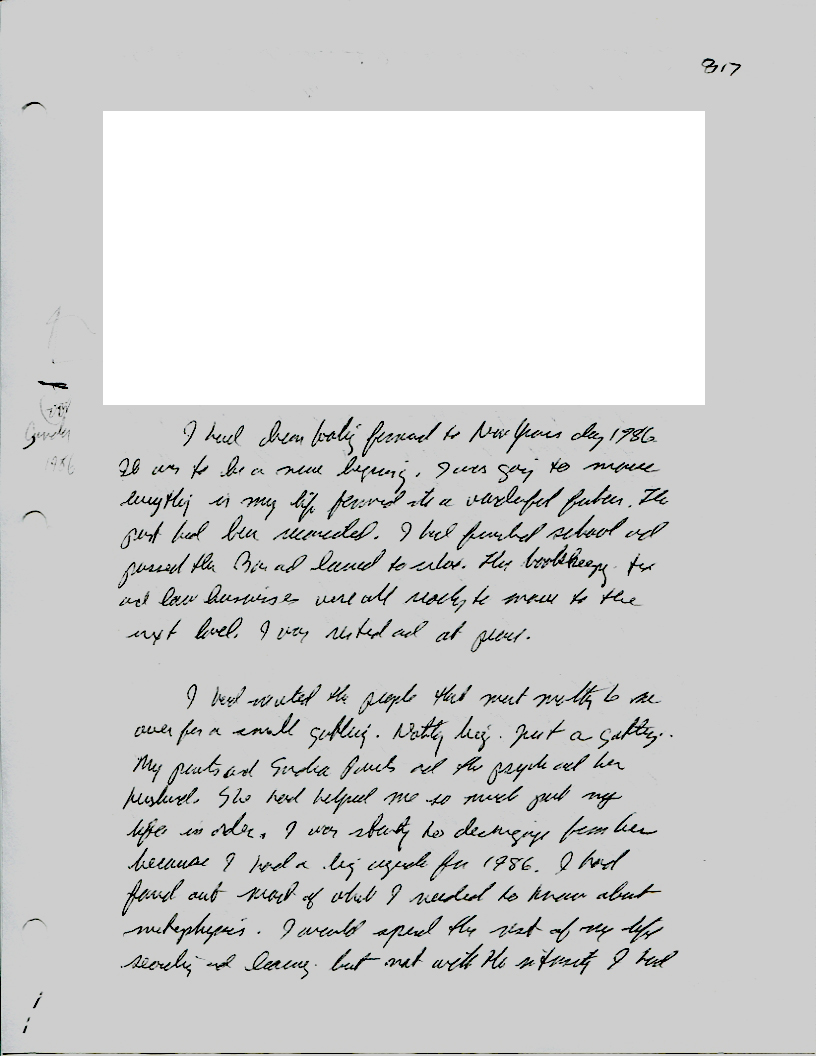 817
I had been looking forward to New Years day 1986
It was to be a new beginning. I was going to move
everything in my life forward into a wonderful future. The
past had been reconciled. I had finished school and
passed the Bar and learned to relax. The bookkeeping tax
and law businesses were all ready to move to the
next level. I was rested and at peace.
I had invited the people that meant most to me
over for a small gathering. Nothing big. Just a gathering.
My parents and and the psychic and her
husband. She had helped me so much put my
life in order. I was starting to disengage from her
because I had a big agenda for 1986. I had
found out most of what I needed to know about
metaphysics. I would spend the rest of my life
searching and learning but not with the intensity I had
1986